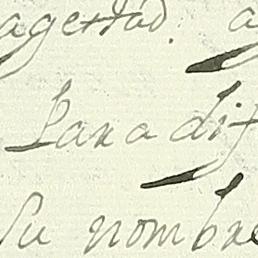 agestad. a
Para dif
Su nombre